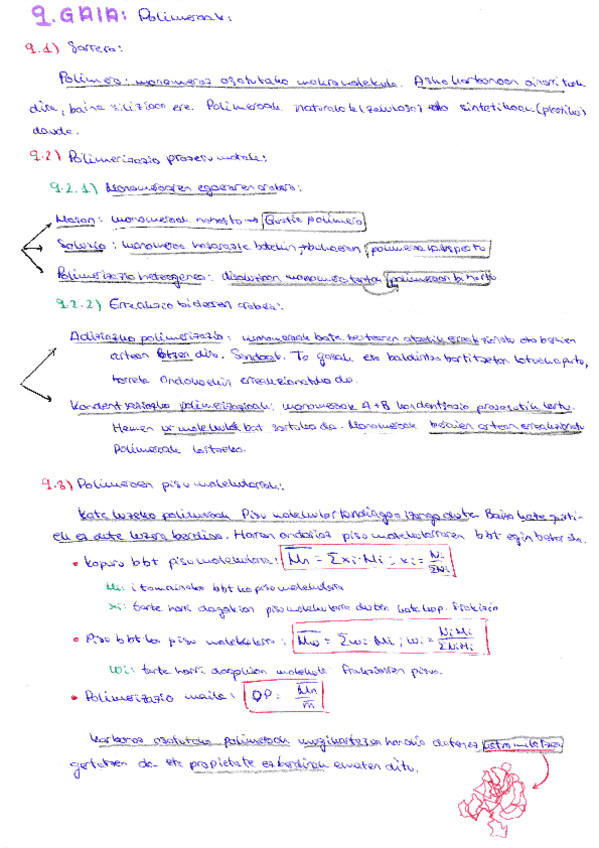 9. GAIA: Polimeroak:
9.1) Sarrera:
Polimero: monomeroz osatutako makromolekula. Asko karbonoan oinarritzen
dira, baina silizioan ere. Polimeroak naturalak (zelulosa) edo sintetikoak (plastiko)
daude.
9.2) Polimerizazio prozesu motak:
9.2.1) Monomeroaren egoeraren arabera:
Masan: monomeroak nahasta → Guztia polimero
Soluzio: monomeroa disolbatzaile batekin, bukaeran
Polimerizazio heterogeneo: disoluzioan monomero
9.2.2) Erreakzio bidearen arabera:
Adiziozko polimerizazio: monomeroak bata bestearen atzetik
artean lotzen dira. Sendoak. To garaiak eta baldintza bortitzetan
Kondentsaziozko polimerizazioak: monomeroak A+B kondentsazio prozesutik lortu.
Hemen ur molekula bat sortuko da. Monomeroak beraien artean erreakzionatu
Polimeroak lortzeko.
9.3) Polimeroen pisu molekularrak:
Kate luzeko polimeroak Pisu molekular handiagoa izango dute. Baina kate guzti-
ek ez dute luzera berdina. Haren ondorioz pisu molekularraren bbt egin behar da.
• Kopuru bbt pisu molekularra: M̅n = Σxi·Mi ; xi = Ni/ΣNi
Mi: i tamainako bbt-ko pisu molekularra
xi: tarte horri dagokion pisu molekularra duten kate kop. frakzioa
• Pisu bbt-ko pisu molekularra: M̅w = Σwi·Mi ; wi = NiMi/ΣNiMi
Wi: tarte horri dagokion molekula frakzioaren pisua.
• Polimerizazio maila: DP: M̅n/m̅
Karbonoz osatutako polimeroak
gertatzen da eta propietate ezberdinak ematen ditu.